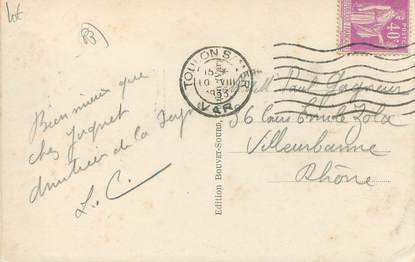 lot
83
TOULON S. MER
15
10 VIII
1933
VAR
40c
Bien mieux que
chez Juquet
de la
L. C.
Edition Bouver-Sourd
Paul Gagneur
36 Cours Emile Zola
Villeurbanne
Rhône